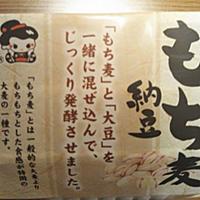 もち麦
納豆
「もち麦」と「大豆」を
一緒に混ぜ込んで、
じっくり発酵させました。
「もち麦」とは一般的な大麦より
もちもちとした食感が特徴の
大麦の一種です。